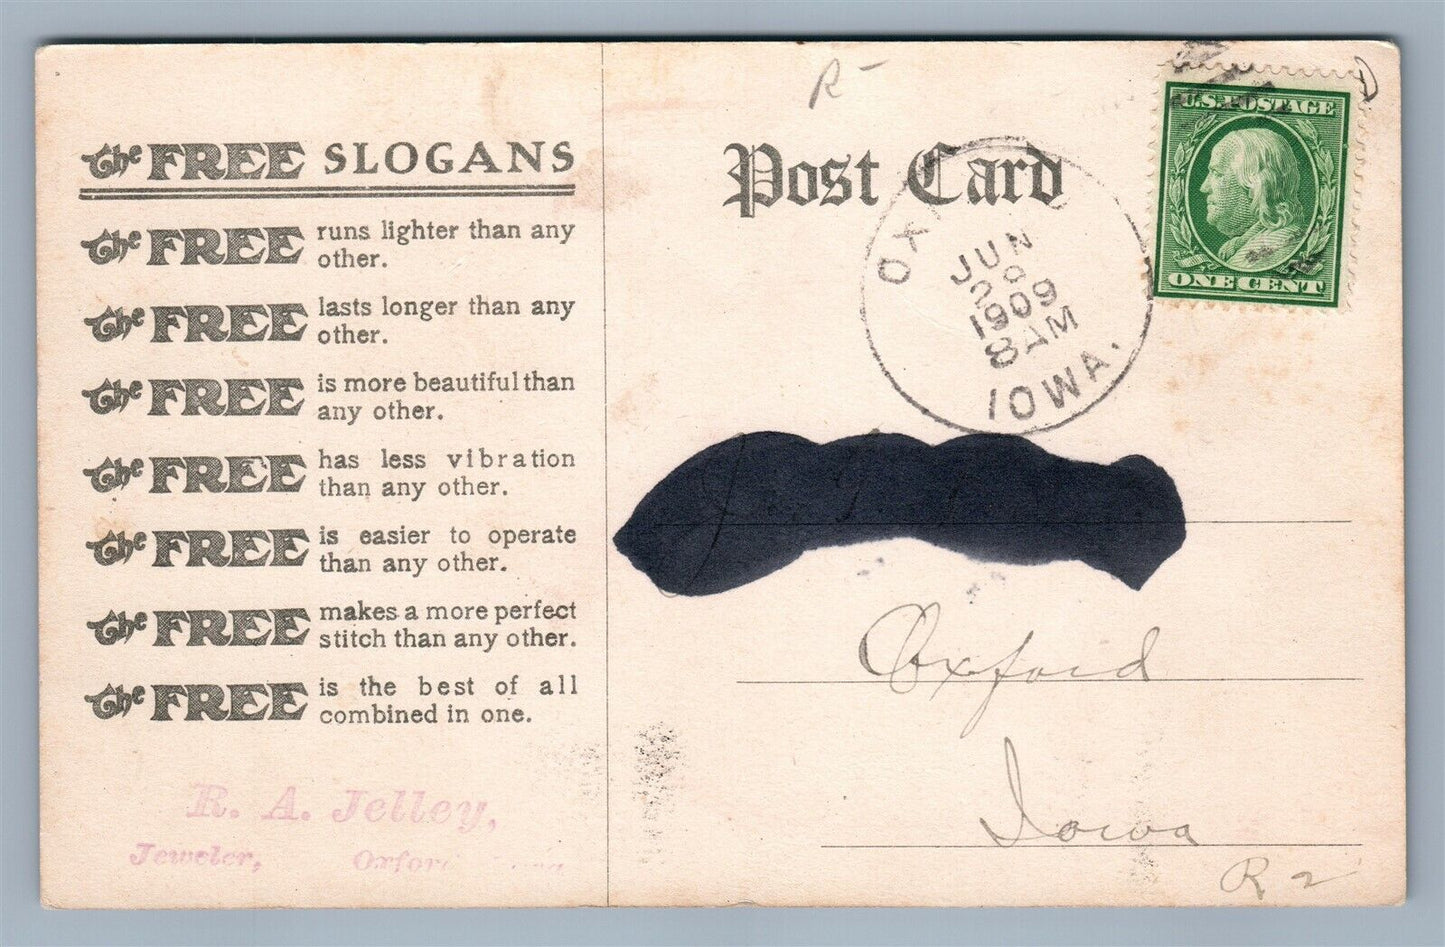 the FREE SLOGANS
the FREE runs lighter than any
other.
the FREE lasts longer than any
other.
the FREE is more beautiful than
any other.
the FREE has less vibration
than any other.
the FREE is easier to operate
than any other.
the FREE makes a more perfect
stitch than any other.
the FREE is the best of all
combined in one.
R. A. Jelley,
Jeweler,
R-
Post Card
U.S. POSTAGE
ONE CENT
JUN
1909
8 AM
IOWA.
Oxford
Iowa
R 2